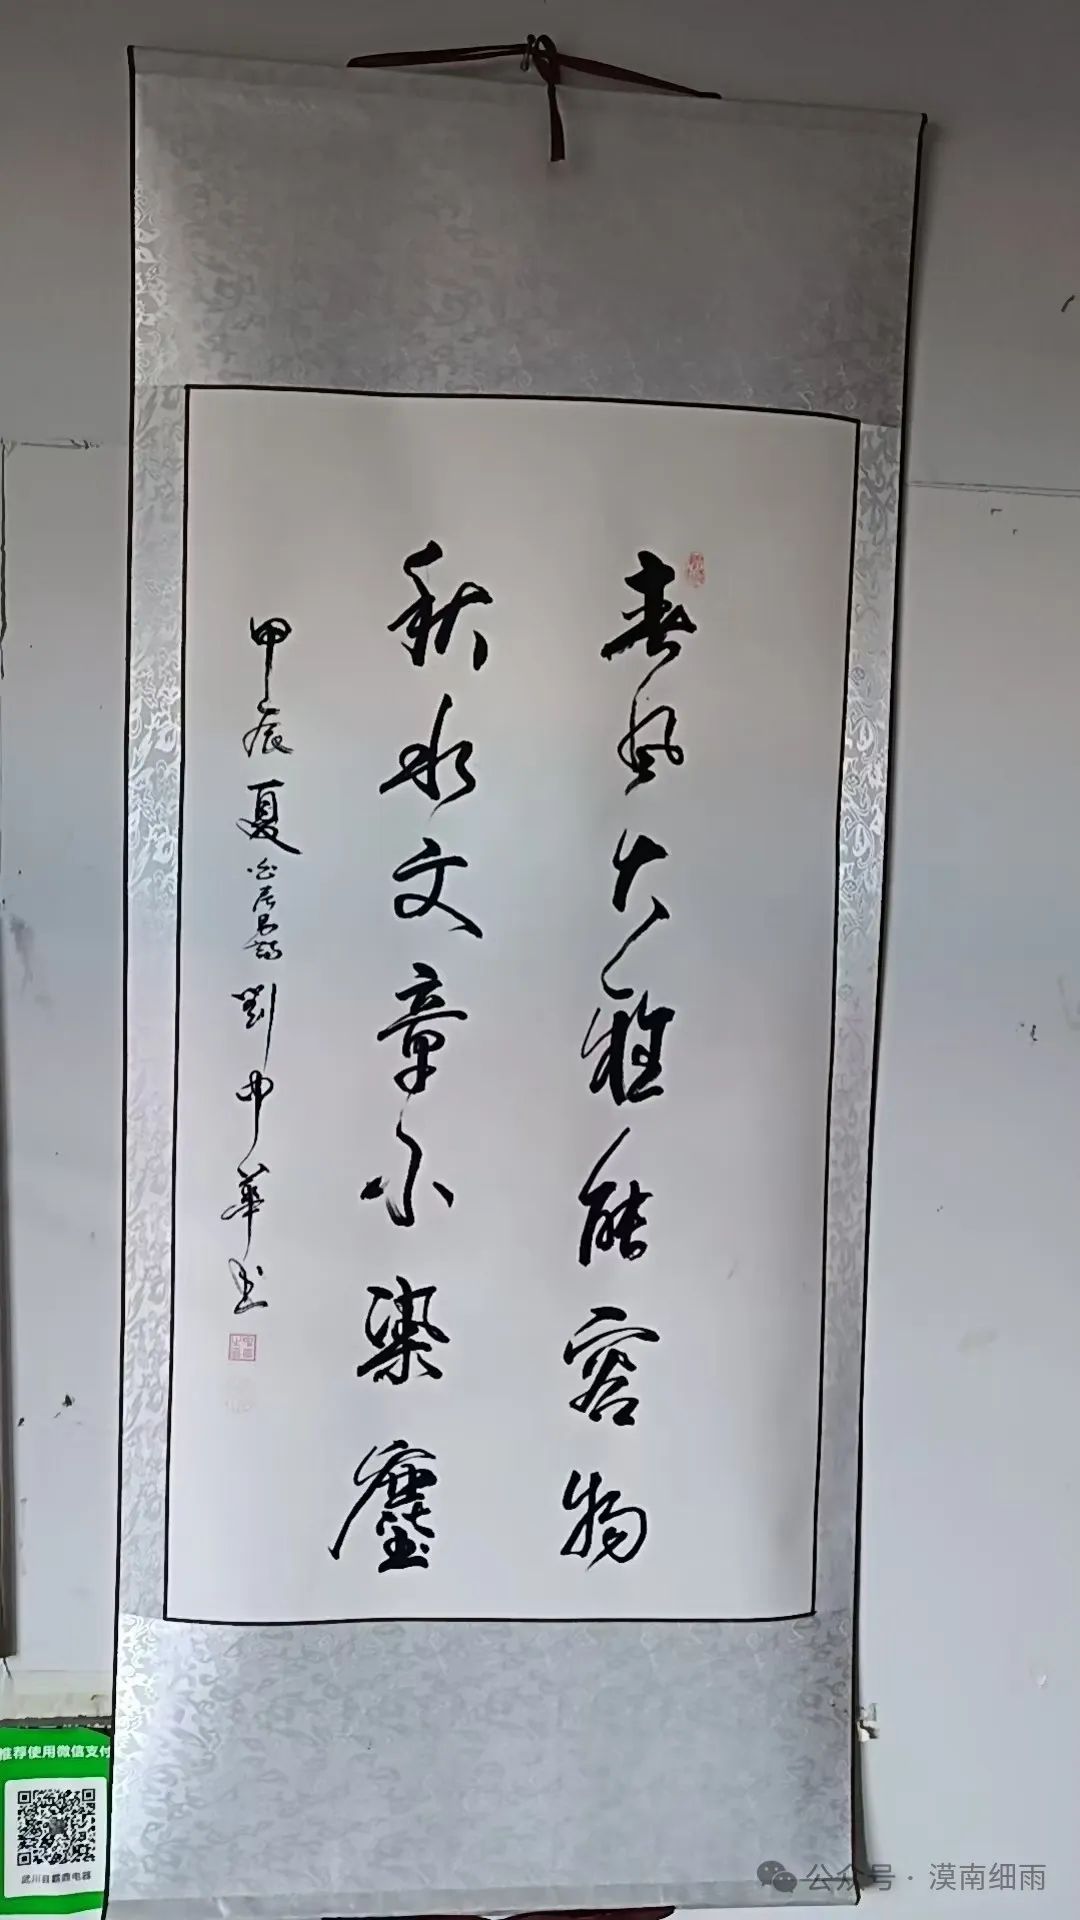 春風大雅能容物
秋水文章不染塵
甲辰夏白居易詩劉中華書
推荐使用微信支付
公众号·漠南细雨